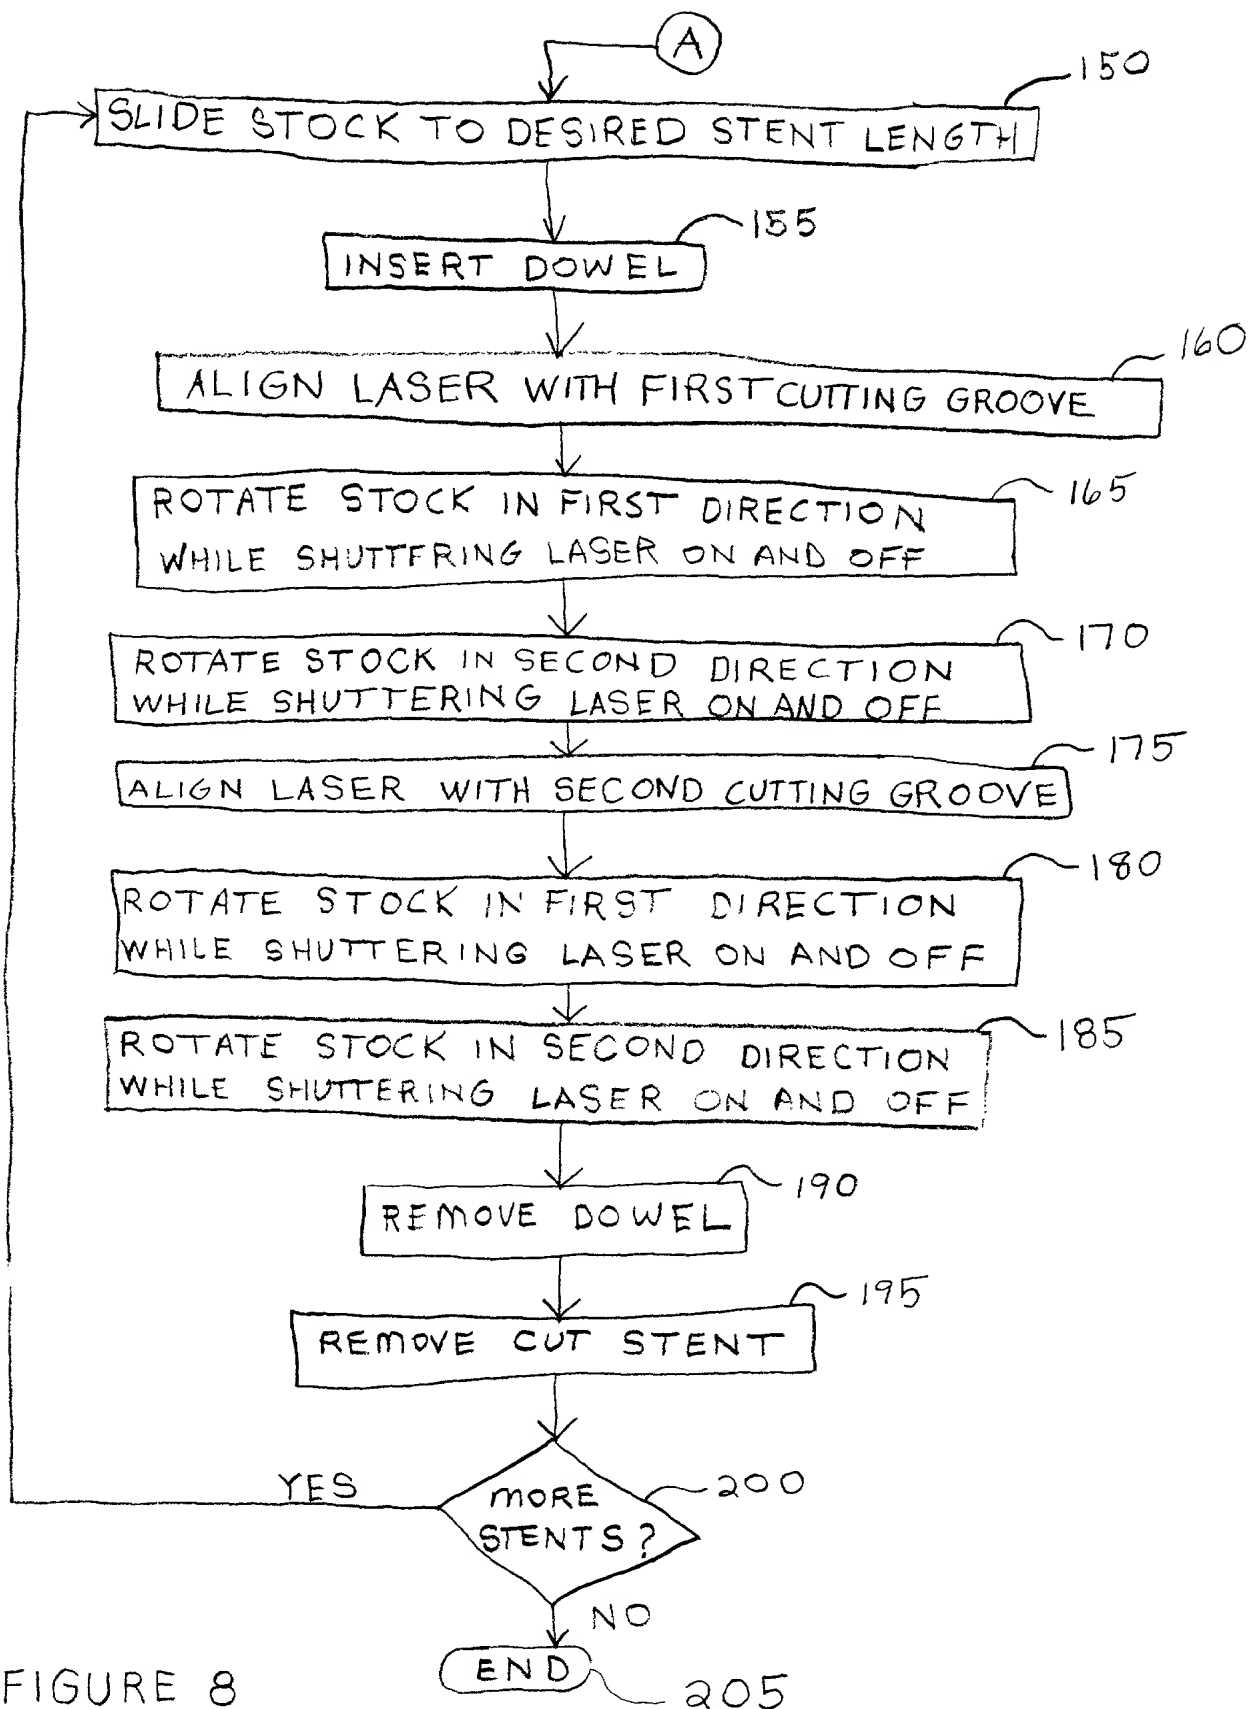 A
150
SLIDE STOCK TO DESIRED STENT LENGTH
155
INSERT DOWEL
160
ALIGN LASER WITH FIRST CUTTING GROOVE
165
ROTATE STOCK IN FIRST DIRECTION
WHILE SHUTTFRING LASER ON AND OFF
170
ROTATE STOCK IN SECOND DIRECTION
WHILE SHUTTERING LASER ON AND OFF
175
ALIGN LASER WITH SECOND CUTTING GROOVE
180
ROTATE STOCK IN FIRST DIRECTION
WHILE SHUTTERING LASER ON AND OFF
185
ROTATE STOCK IN SECOND DIRECTION
WHILE SHUTTERING LASER ON AND OFF
190
REMOVE DOWEL
195
REMOVE CUT STENT
YES
200
MORE
STENTS?
NO
END
205
FIGURE 8